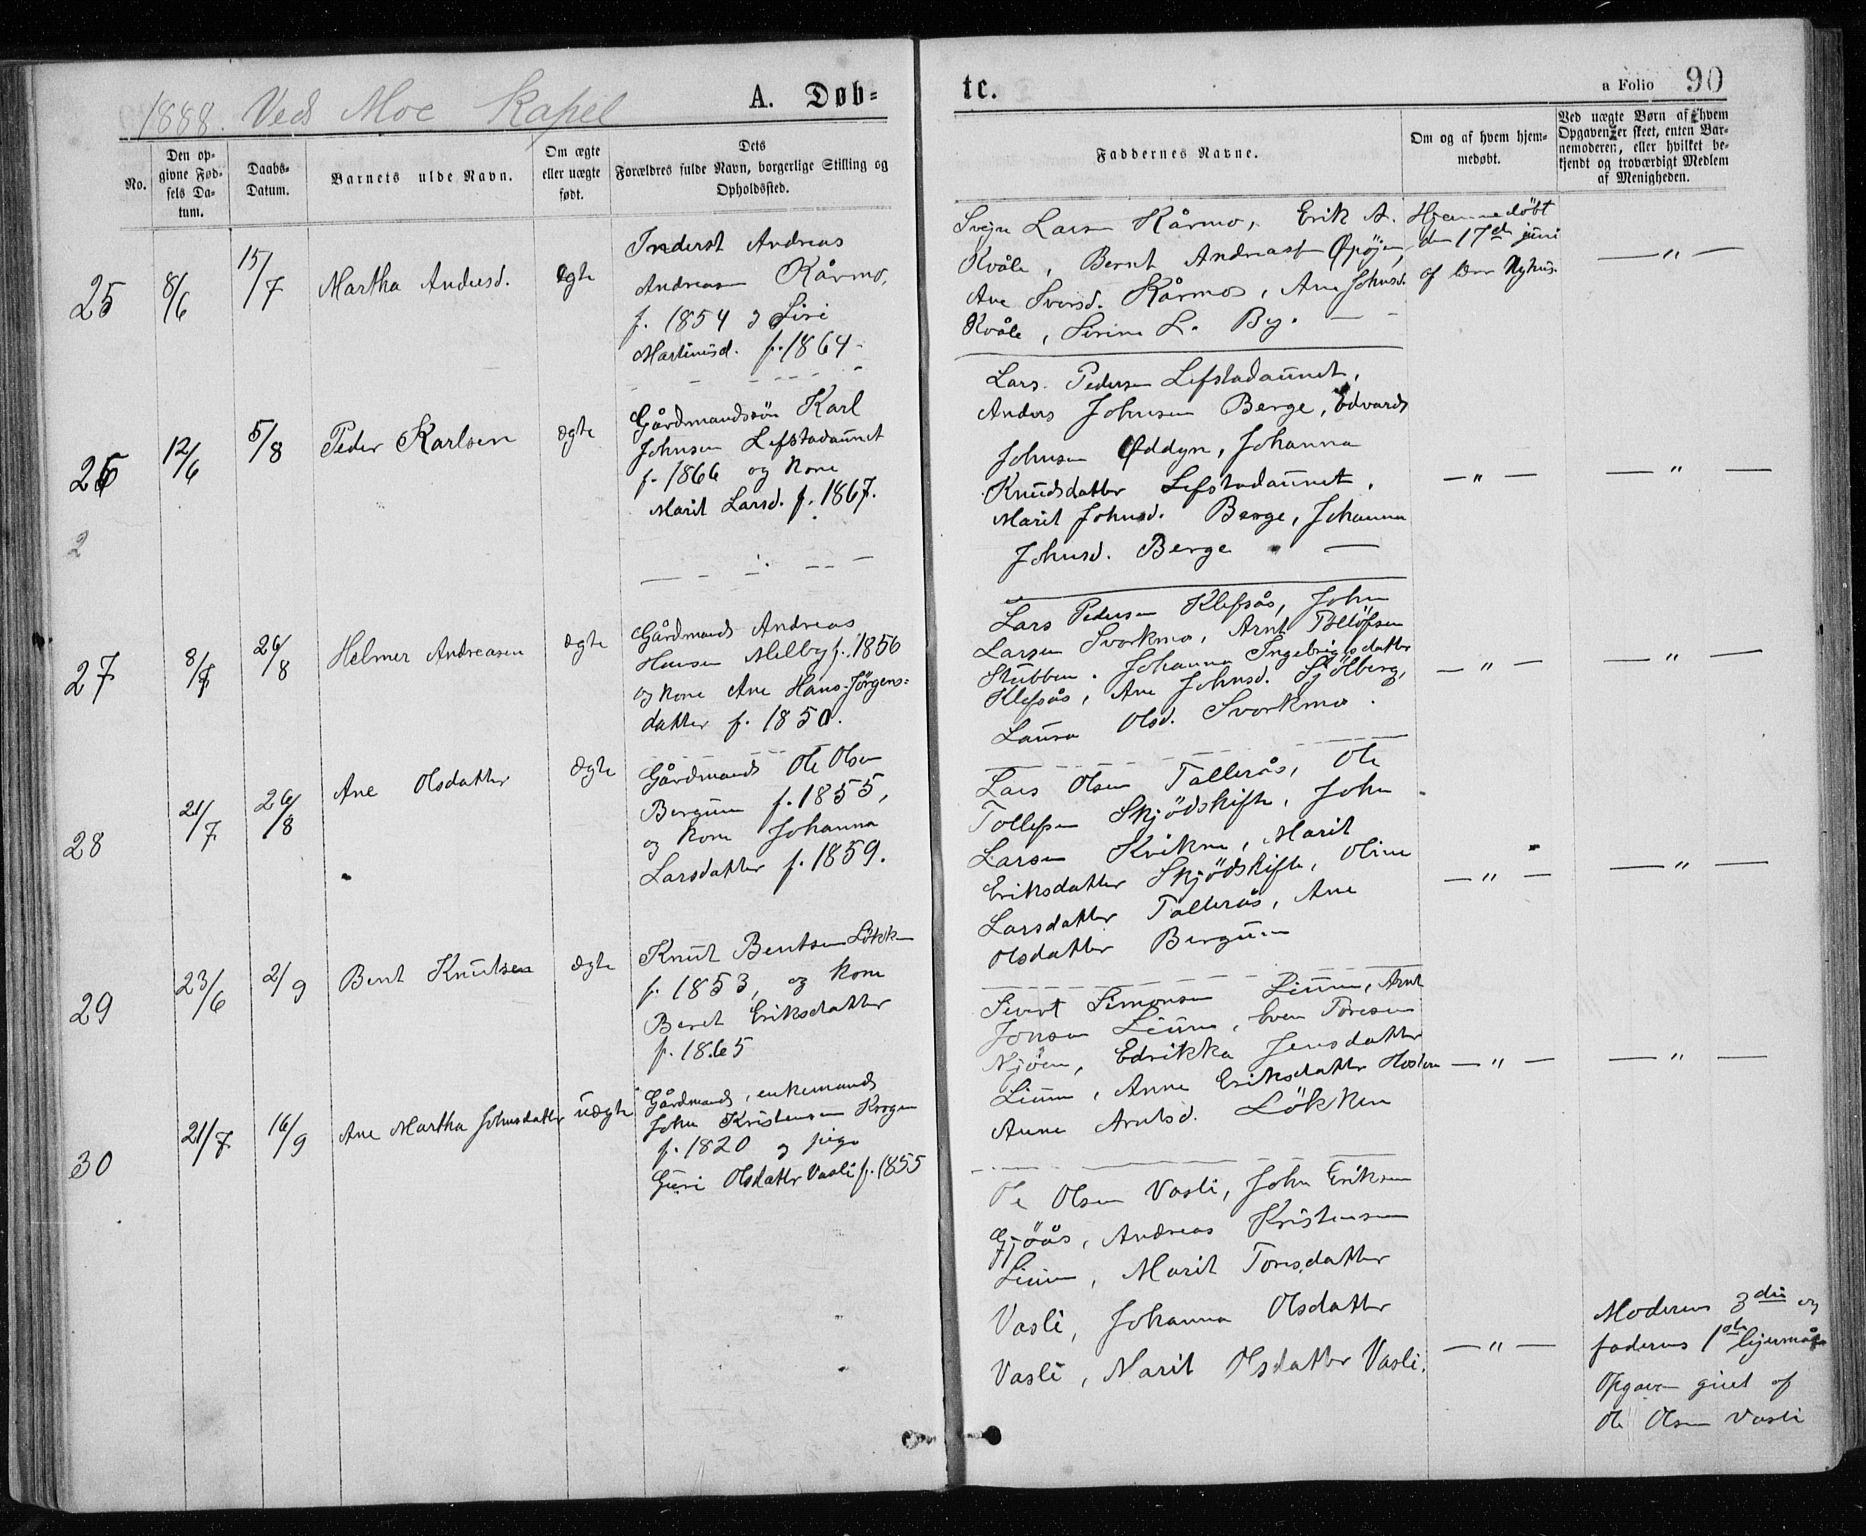 1888. Ved Moe Kapel
A. Døb-
te.
a Folio 90
No.
Den op-
givne Fød-
sels Da-
tum.
Daabs-
Datum.
Barnets ulde Navn.
Om ægte
eller uægte
født.
Dets
Forældres fulde Navn, borgerlige Stilling og
Opholdssted.
Faddernes Navne.
Om og af hvem hjem-
medøbt.
Ved uægte Børn af hvem
Opgaven er skeet, enten Bar-
nemoderen, eller hvilket be-
kjendt og troværdigt Medlem
af Menigheden.
25
8/6
15/7
Martha Andersd.
ægte
Inderst Andreas
Andreasen Kårmo,
f. 1854 og Siri
Martinusd. f. 1864 -
Svejn Larsen Kårmo, Erik A.
Kvåle, Bernt Andreasen
Ane Siversd. Kårmo, Ane Johnsd.
Kvåle, Serine L. By. — —
Hjemmedöbt
den 17de juni
af Nyhus
— " —
26
12/6
5/8
Peder Karlsen
ægte
Gårdmandssön Karl
Johnsen Lefstadaunet
f. 1866 og kone
Marit Larsd. f. 1867.
Lars Pedersen Lefstadaunet,
Anders Johnsen Berge, Edvard
Johnsen Øddyn, Johanna
Knudsdatter Lefstadaunet,
Marit Johnsd. Berge, Johanna
Johnsd. Berge —
— " —
— " —
2
27
8/7
26/8
Helmer Andreasen
ægte
Gårdmand Andreas
Hansen Melby f. 1856
og kone Ane Hans-Jörgens-
datter f. 1850.
Lars Pedersen Klefsås, John
Larsen Svorkmo, Arnt Tollöfsen
Stubben, Johanna Ingebrigtsdatter
Klefsås, Ane Johnsd. Sjölberg,
Laura Olsd. Svorkmo.
— " —
— " —
28
21/7
26/8
Ane Olsdatter
ægte
Gårdmand Ole Olsen
Bergum f. 1855,
og kone Johanna
Larsdatter f. 1859.
Lars Olsen Tallerås, Ole
Tollefsen Skjödskift, John
Larsen Kvikne, Marit
Eriksdatter Skjödskift, Oline
Larsdatter Tallerås, Ane
Olsdatter Bergum
— " —
— " —
29
23/6
2/9
Bent Knutsen
ægte
Knut Bentsen Lökken
f. 1853, og kone
Beret Eriksdatter
f. 1865
Sivert Simonsen Lium, Arnt
Jonsen Lium, Even Toresen
Njöen, Edrikka Jensdatter
Lium, Anne Eriksdatter
Anne Arntsd. Lökken
— " —
— " —
30
21/7
16/9
Ane Martha Johnsdatter
uægte
Gårdmand, enkemand
John Kristensen Krogen
f. 1820 og pige
Guri Olsdatter Vasli f. 1855
Ole Olsen Vasli, John Eriksen
Gjöås, Andreas Kristensen
Lium, Marit Toresdatter
Vasli, Johanna Olsdatter
Vasli, Marit Olsdatter Vasli.
— " —
Moderens 3die og
faderens 1ste lejermål
Opgaven givet af
Ole Olsen Vasli